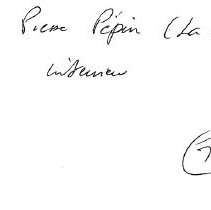 Pierre Pépin (La
interview